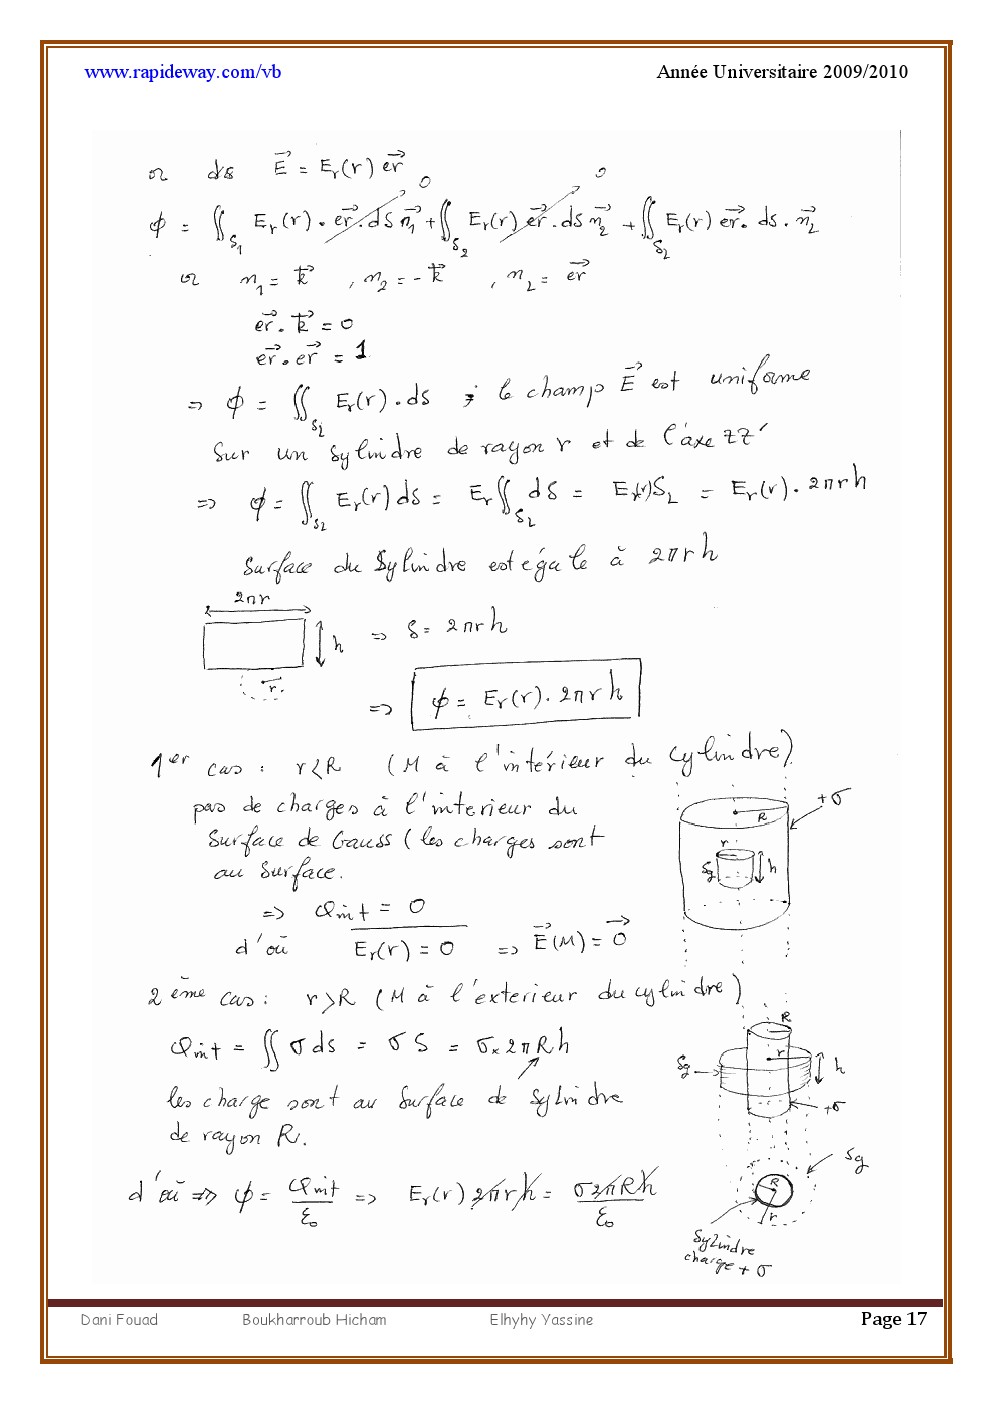 www.rapideway.com/vb Année Universitaire 2009/2010
or ds E⃗ = Er(r) er⃗
0 0
ϕ = ∬S1 Er(r) · er⃗ . ds n1⃗ + ∬S2 Er(r) er⃗ . ds n2⃗ + ∬S2 Er(r) er⃗ . ds . n2⃗
or n1 = k⃗ , n2 = - k⃗ , n2 = er⃗
er⃗ . k⃗ = 0
er⃗ . er⃗ = 1
⇒ ϕ = ∬S2 Er(r) . ds ; le champ E⃗ est uniforme
Sur un Sylindre de rayon r et de l'axe ZZ'
⇒ ϕ = ∬S2 Er(r) ds = Er ∬S2 ds = Er(r) SL = Er(r) . 2πrh
Surface du Sylindre est égale à 2πrh
2πr
h ⇒ S = 2πrh
r
⇒ ϕ = Er(r) . 2πrh
1er cas : r<R (M à l'intérieur du cylindre)
pas de charges à l'interieur du
Surface de Gauss (les charges sont
au surface.
⇒ Qint = 0
d'où Er(r) = 0 ⇒ E⃗(M) = 0⃗
+σ
R
r
Sg
h
2ème cas : r>R (M à l'exterieur du cylindre)
Qint = ∬ σ ds = σ S = σ x 2πRh
les charge sont au Surface de Sylindre
de rayon R.
R
r
Sg
h
+σ
d'où ⇒ ϕ = Qint/ε0 ⇒ Er(r) 2πrh = σ2πRh/ε0
Sg
R
r
Sylindre
charge + σ
Dani Fouad Boukharroub Hicham Elhyhy Yassine Page 17